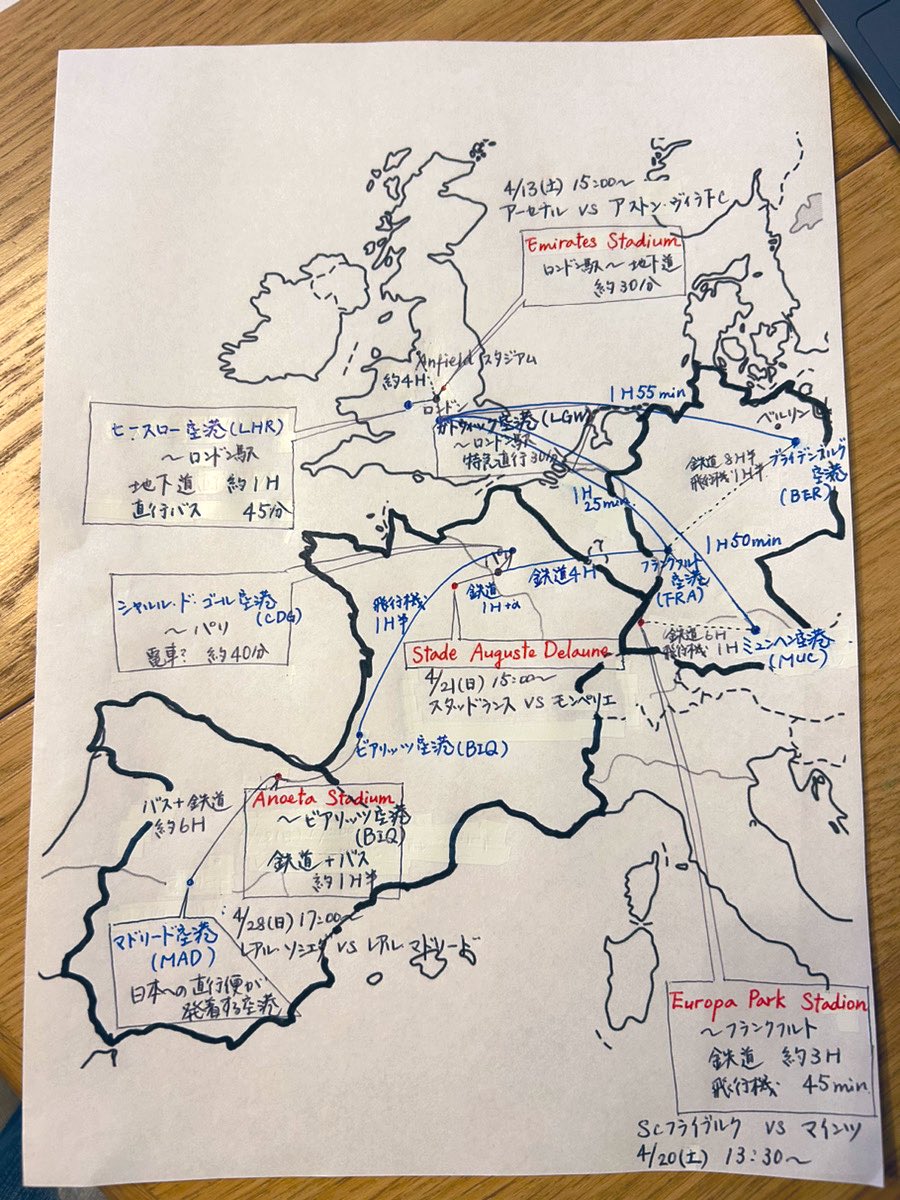 4/13(土) 15:00〜
アーセナル VS アストン・ヴィラFC
Emirates Stadium
ロンドン駅〜地下道
約30分
Anfieldスタジアム
約4H
ロンドン
ヒースロー空港(LHR)
〜ロンドン駅
地下道 約1H
直行バス 45分
ガトウィック空港(LGW)
〜ロンドン駅
特急直行30分
1H55min
ベルリン
ブライデンブルグ
空港
(BER)
鉄道8H半
飛行機1H半
1H
25min
1H50min
フランクフルト
空港
(FRA)
鉄道4H
パリ
鉄道
1H+α
飛行機
1H半
シャルル・ド・ゴール空港
(CDG)
〜パリ
電車? 約40分
鉄道6H
飛行機1H
ミュンヘン空港
(MUC)
Stade Auguste Delaune
4/21(日) 15:00〜
スタッドランス VS モンペリエ
ビアリッツ空港(BIQ)
Anoeta Stadium
〜ビアリッツ空港
(BIQ)
鉄道+バス
約1H半
バス+鉄道
約6H
4/28(日) 17:00〜
レアル・ソシエダ VS レアル・マドリード
マドリード空港
(MAD)
日本への直行便が
発着する空港
Europa Park Stadion
〜フランクフルト
鉄道 約3H
飛行機 45min
SCフライブルク VS マインツ
4/20(土) 13:30〜